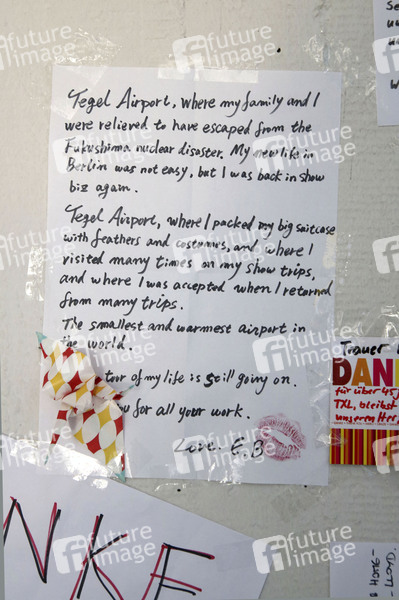 Tegel Airport, where my family and I
were relieved to have escaped from the
Fukushima nuclear disaster. My new life in
Berlin was not easy, but I was back in show
biz again.
Tegel Airport, where I packed my big suitcase
with feathers and costumes, and where I
visited many times on my show trips,
and where I was accepted when I returned
from many trips.
The smallest and warmest airport in
the world.
tour of my life is still going on.
for all your work.
Love. E.B
Trauer
DAN
für über 45
TXL, bleibst
unserem Her
NKE
future image